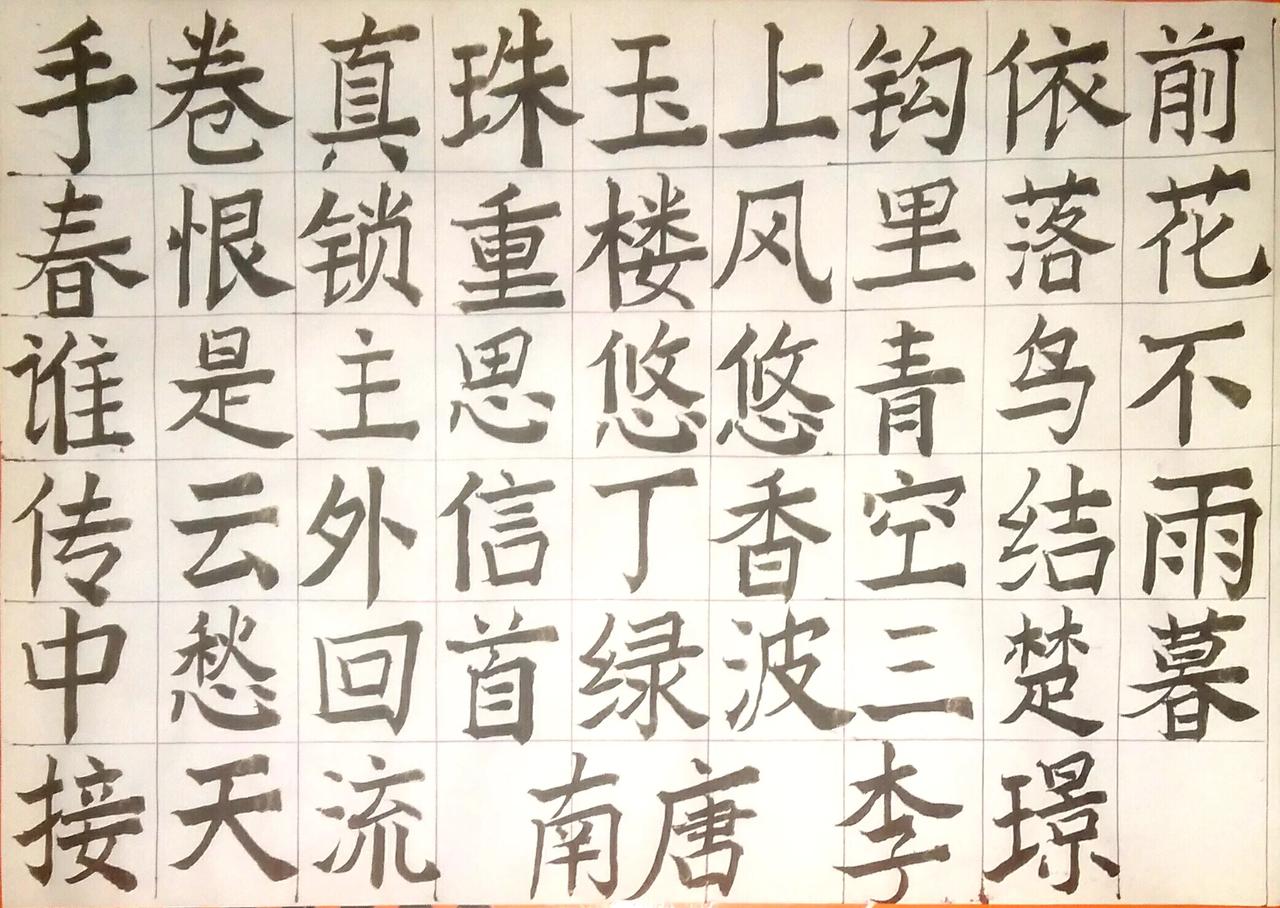 手卷真珠玉上钩依前
春恨锁重楼风里落花
谁是主思悠悠青鸟不
传云外信丁香空结雨
中愁回首绿波三楚暮
接天流 南唐 李璟